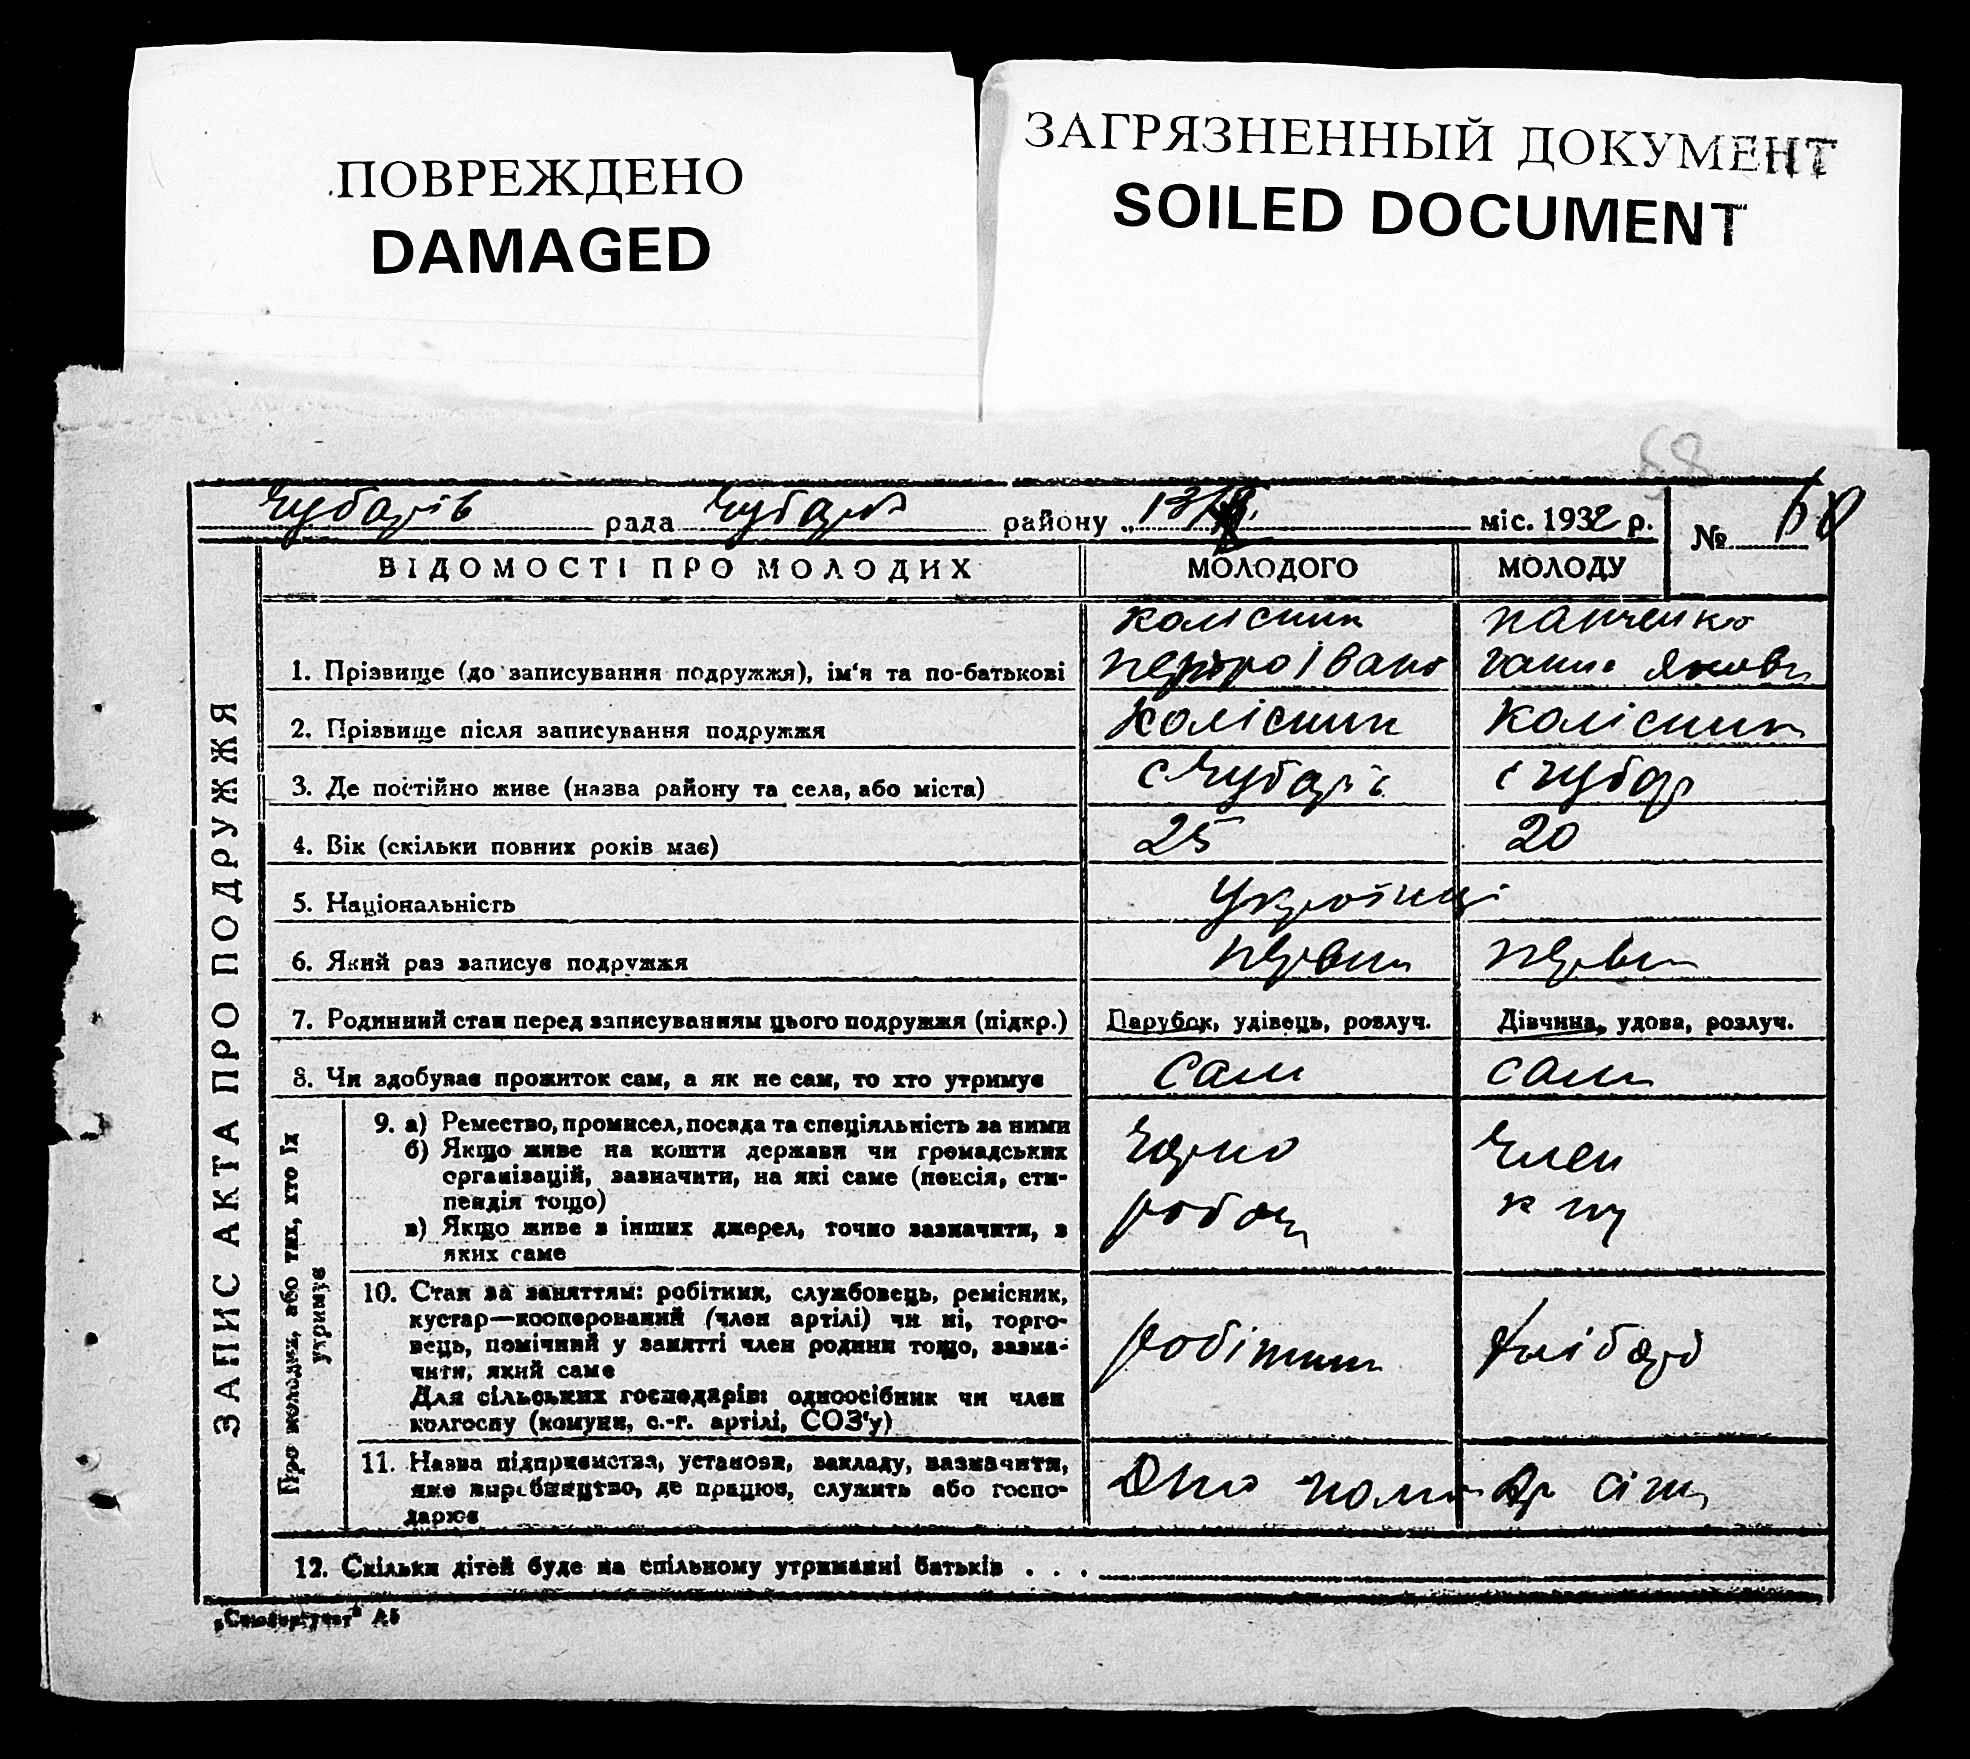 ПОВРЕЖДЕНО
DAMAGED
ЗАГРЯЗНЕННЫЙ ДОКУМЕНТ
SOILED DOCUMENT
68
Чубарів рада Чубарів району „13/ міс. 1932 р. № 68
ЗАПИС АКТА ПРО ПОДРУЖЖЯ
ВІДОМОСТІ ПРО МОЛОДИХ МОЛОДОГО МОЛОДУ
1. Прізвище (до записування подружжя), ім'я та по-батькові Колісник Петро Івано Панченко Ганна Яковл
2. Прізвище після записування подружжя Колісник Колісник
3. Де постійно живе (назва району та села, або міста) с Чубарів с Чубар
4. Вік (скільки повних років має) 25 20
5. Національність Українці
6. Який раз записує подружжя первий перви
7. Родинний стан перед записуванням цього подружжя (підкр.) Парубок, удівець, розлуч. Дівчина, удова, розлуч.
8. Чи здобуває прожиток сам, а як не сам, то хто утримує сам сама
Про молодих, або тих, хто їх утримує
9. а) Ремество, промисел, посада та спеціяльність за ними
б) Якщо живе на кошти держави чи громадських
організацій, зазначити, на які саме (пенсія, сти-
пендія тощо)
в) Якщо живе з інших джерел, точно зазначити, з
яких саме
Чорно
робоч
Член
10. Стан за заняттям: робітник, службовець, ремісник,
кустар—кооперований (член артілі) чи ні, торго-
вець, помічний у занятті член родини тощо, зазна-
чити, який саме
Для сільських господарів: одноосібник чи член
колгоспу (комуни, с.-г. артілі, СОЗ'у)
робітник
хлібороб
11. Назва підприємства, установи, закладу, зазначити,
яке виробництво, де працює, служить або госпо-
дарює
12. Скільки дітей буде на спільному утриманні батьків . . .